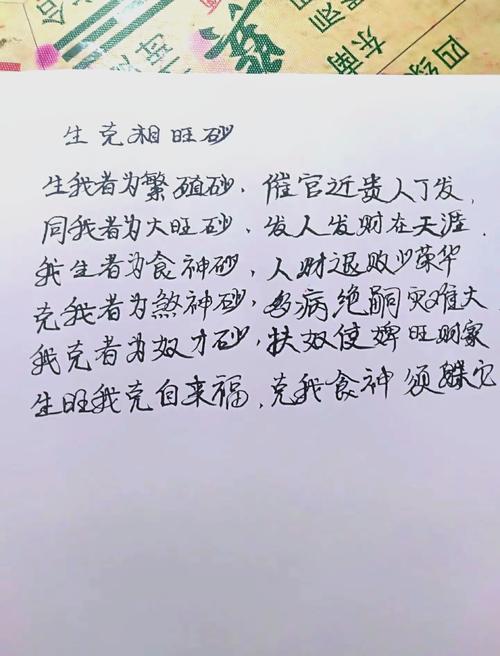 四绿
东南
生克相旺砂
生我者为繁殖砂、催官近贵人丁发,
同我者为大旺砂、发人发财在天涯.
我生者为食神砂,人财退败少荣华
克我者为煞神砂,多病绝嗣灾难大
我克者为奴才砂,扶奴使婢旺财家
生旺我克自来福,克我食神须躲它